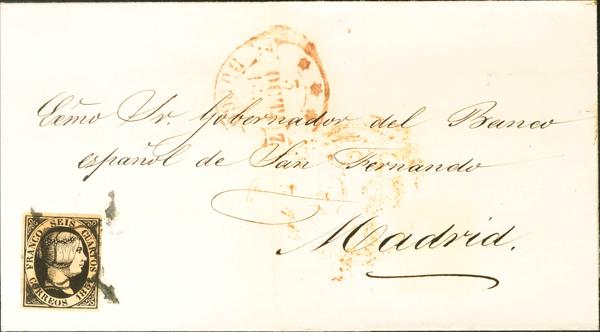 Exmo Sr. Gobernador del Banco
español de San Fernando
Madrid.
FRANCO SEIS CUARTOS
CORREOS 1851